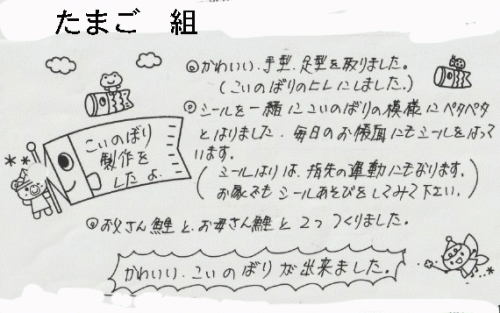 たまご 組
こいのぼり
製作を
したよ
かわいい、手型、足型を取りました。
(こいのぼりのヒレにしました。)
シールを一緒にこいのぼりの模様にペタペタ
とはりました。毎日のお帳面にもシールをはって
います。
(シールはりは、指先の運動にもなります。
お家でもシールあそびをしてみて下さい。)
お父さん鯉と、お母さん鯉と2つつくりました。
かわいい、こいのぼりが出来ました。